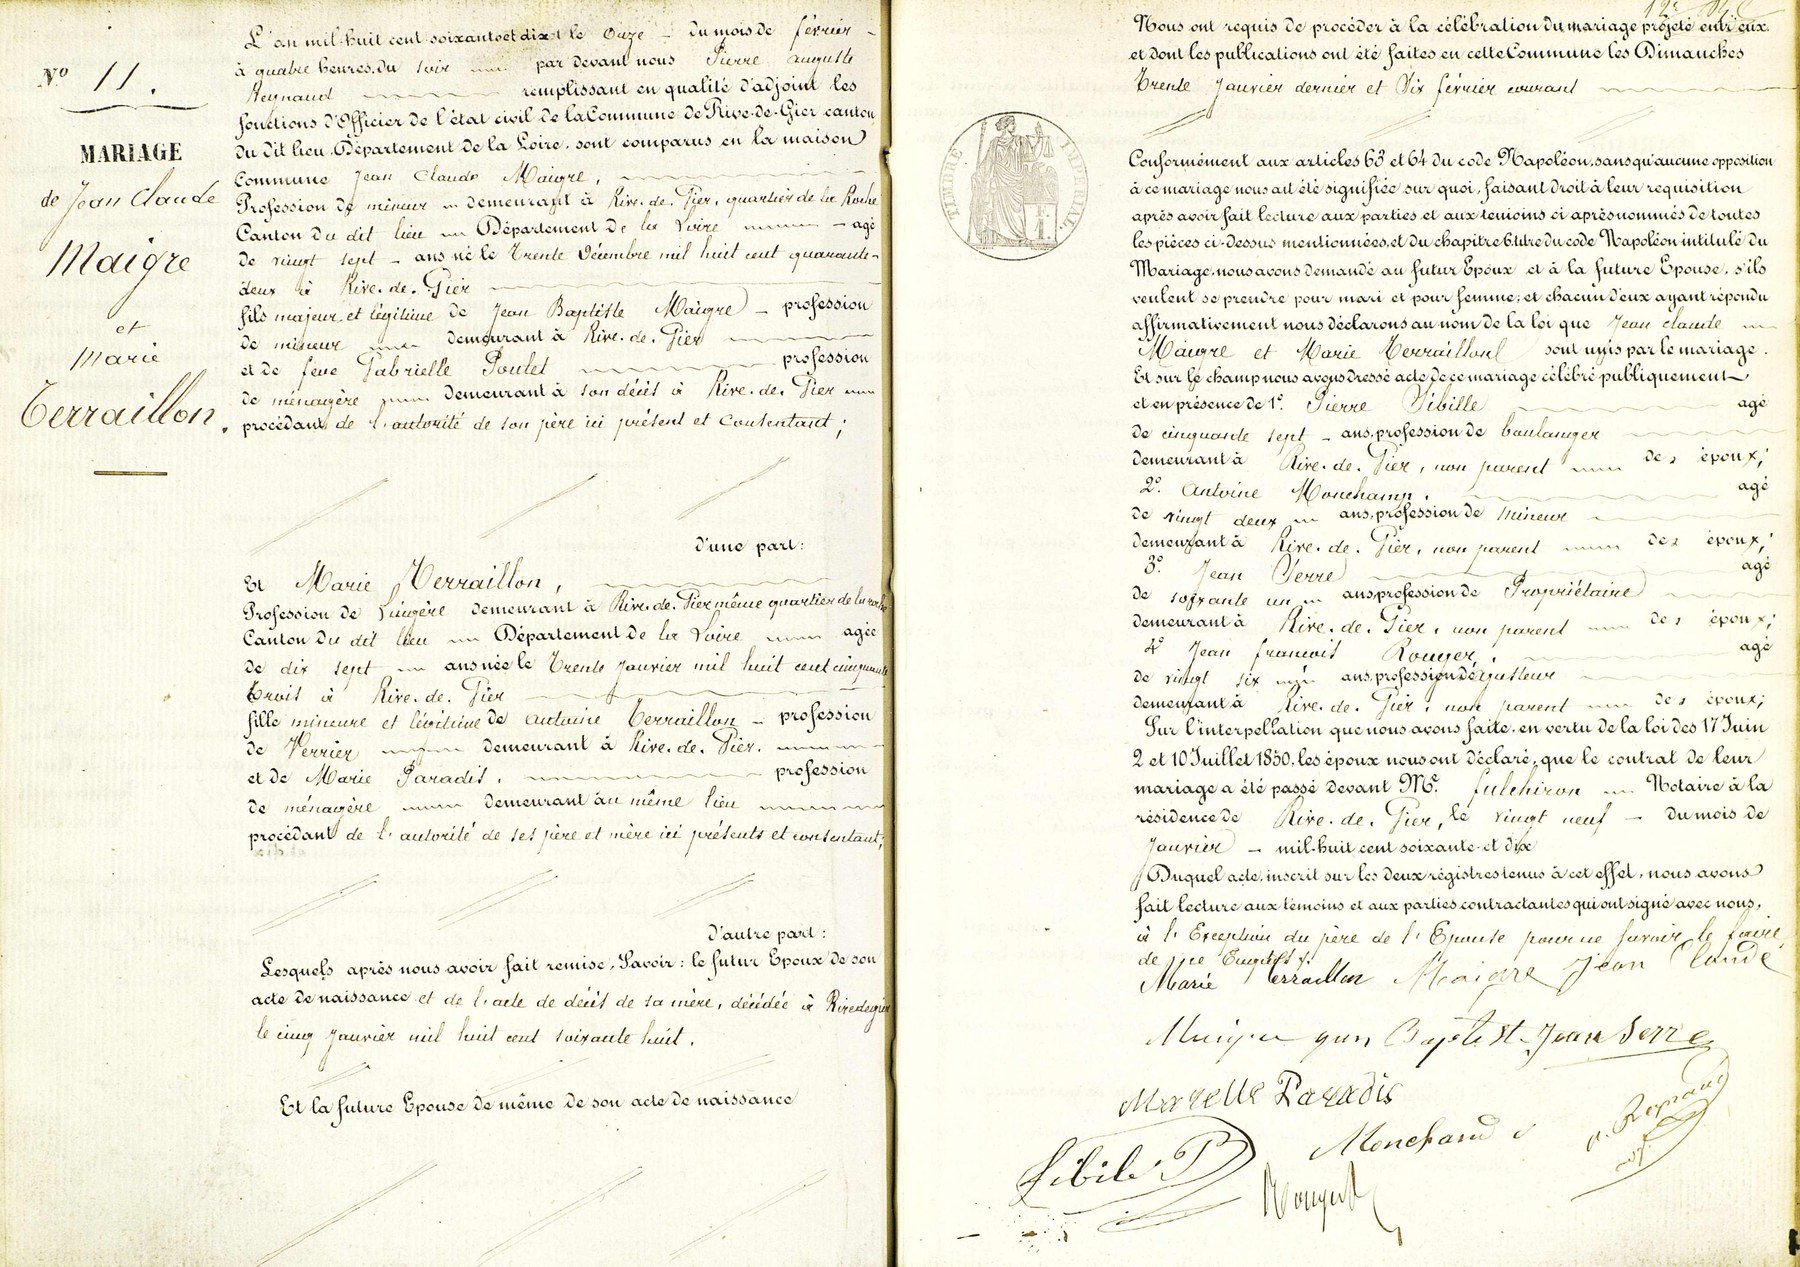 Nº 11.
MARIAGE
de Jean Claude
Maigre
et
Marie
Terraillon.
L'an mil-huit cent soixante et dix le Onze du mois de février
à quatre heures du soir par devant nous Pierre Auguste
Reynaud remplissant en qualité d'adjoint les
fonctions d'Officier de l'état civil de la Commune de Rive-de-Gier canton
du dit lieu Département de la Loire, sont comparus en la maison
Commune Jean Claude Maigre,
Profession de mineur demeurant à Rive-de-Gier, quartier de la Roche
Canton du dit lieu Département de la Loire agé
de vingt sept ans né le trente Décembre mil huit cent quarante-
deux à Rive-de-Gier
fils majeur et légitime de Jean Baptiste Maigre profession
de mineur demeurant à Rive-de-Gier
et de feue Gabrielle Poulet profession
de ménagère demeurant à son décès à Rive-de-Gier
procédant de l'autorité de son père ici présent et consentant;
d'une part:
Et Marie Terraillon,
Profession de Lingère demeurant à Rive-de-Gier même quartier de la roche
Canton du dit lieu Département de la Loire agée
de dix sept ans née le trente Janvier mil huit cent cinquante
trois à Rive-de-Gier
fille mineure et légitime de Antoine Terraillon profession
de Verrier demeurant à Rive-de-Gier.
et de Marie Paradis, profession
de ménagère demeurant au même lieu
procédant de l'autorité de ses père et mère ici présents et consentant;
d'autre part:
Lesquels après nous avoir fait remise, Savoir: le futur Epoux de son
acte de naissance et de l'acte de décès de sa mère, décédée à Rivedegier
le cinq Janvier mil huit cent soixante huit.
Et la future Epouse de même de son acte de naissance
Nous ont requis de procéder à la célébration du mariage projeté entr'eux
et dont les publications ont été faites en cette Commune les Dimanches
trente Janvier dernier et Six février courant
TIMBRE IMPERIAL
Conformément aux articles 63 et 64 du code Napoléon, sans qu'aucune opposition
à ce mariage nous ait été signifiée sur quoi, faisant droit à leur requisition
après avoir fait lecture aux parties et aux temoins ci après nommés de toutes
les pièces ci-dessus mentionnées, et du chapitre 6 titre du code Napoléon intitulé du
Mariage, nous avons demandé au futur Epoux et à la future Epouse, s'ils
veulent se prendre pour mari et pour femme; et chacun d'eux ayant répondu
affirmativement nous déclarons au nom de la loi que Jean Claude
Maigre et Marie Terraillon sont unis par le mariage.
Et sur le champ nous avons dressé acte de ce mariage célébré publiquement
et en présence de 1º. Pierre Sibille agé
de cinquante sept ans, profession de boulanger
demeurant à Rive-de-Gier, non parent des époux;
2º. Antoine Monchamp, agé
de vingt deux ans, profession de mineur
demeurant à Rive-de-Gier, non parent des époux;
3º. Jean Serre agé
de soixante un ans, profession de Propriétaire
demeurant à Rive-de-Gier, non parent des époux;
4º Jean francois Rouger, agé
de vingt six ans, profession de ajusteur
demeurant à Rive-de-Gier, non parent des époux;
Sur l'interpellation que nous avons faite, en vertu de la loi des 17 Juin
2 et 10 Juillet 1850, les époux nous ont déclaré, que le contrat de leur
mariage a été passé devant Me. fulchiron Notaire à la
résidence de Rive-de-Gier, le vingt neuf du mois de
Janvier mil-huit cent soixante et dix
Duquel acte, inscrit sur les deux régistres tenus à cet effet, nous avons
fait lecture aux témoins et aux parties contractantes qui ont signé avec nous,
à l'Exception du père de l'Epouse pour ne savoir le faire,
de ce Enquis./.
Marie Terraillon Maigre Jean Claude
Baptist Jean Serre
Paradis
Sibile P Monchand A. Reynaud
adj.